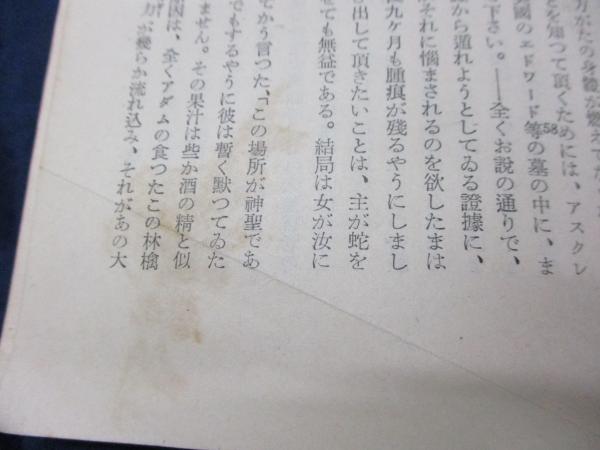 方がたの身體が變へ
とを知つて頂くためには、アスクレ
國のエドワード等の墓の中に、ま
58
下さい。――全くお説の通りで、
から遁れようとしてゐる證據に、
それに惱まされるのを欲したまは
九ケ月も腫痕が殘るやうにしまし
出して頂きたいことは、主が蛇を
せても無益である。結局は女が汝に
てかう言つた、「この場所が神聖であ
でもするやうに彼は暫く默つてゐた
ません。その果汁は些か酒の精と似
因は、全くアダムの食つたこの林檎
力が幾らか流れ込み、それがあの大